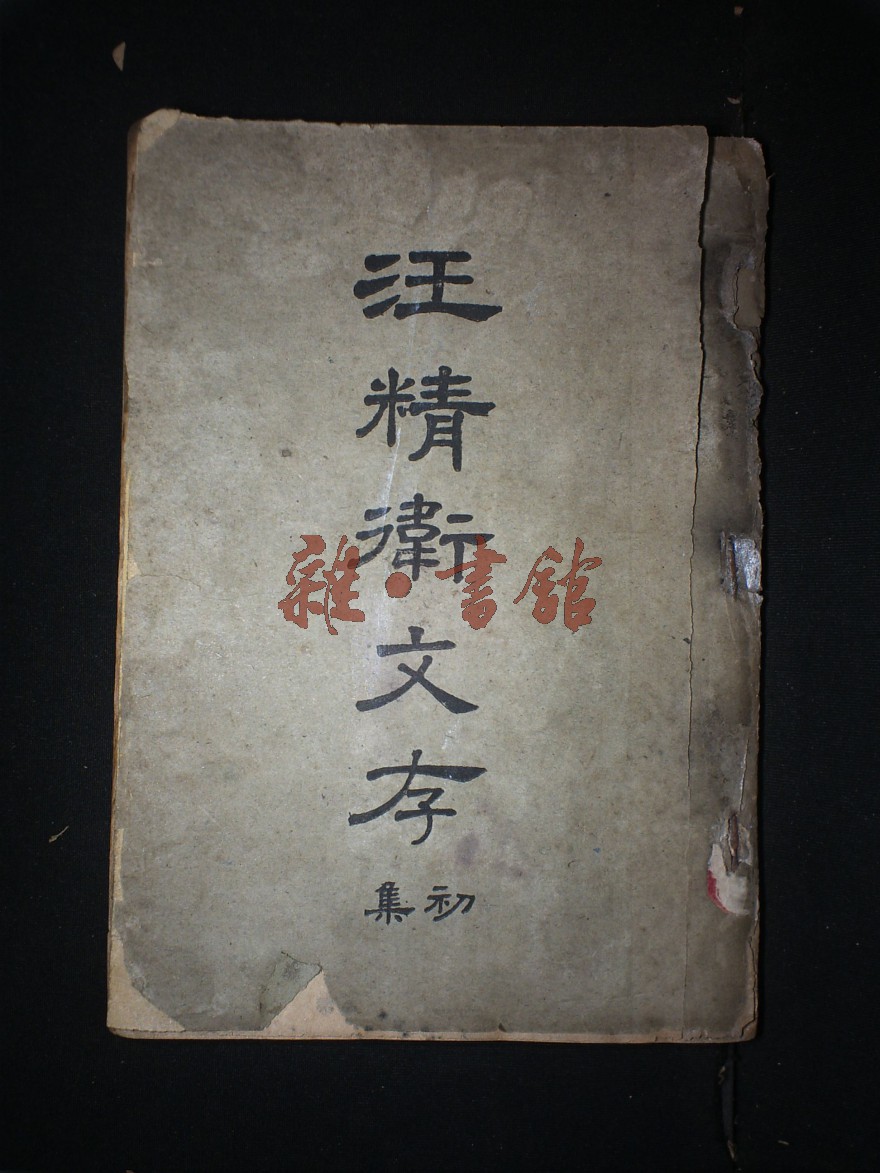 汪精衛文存
初集
雜·書館